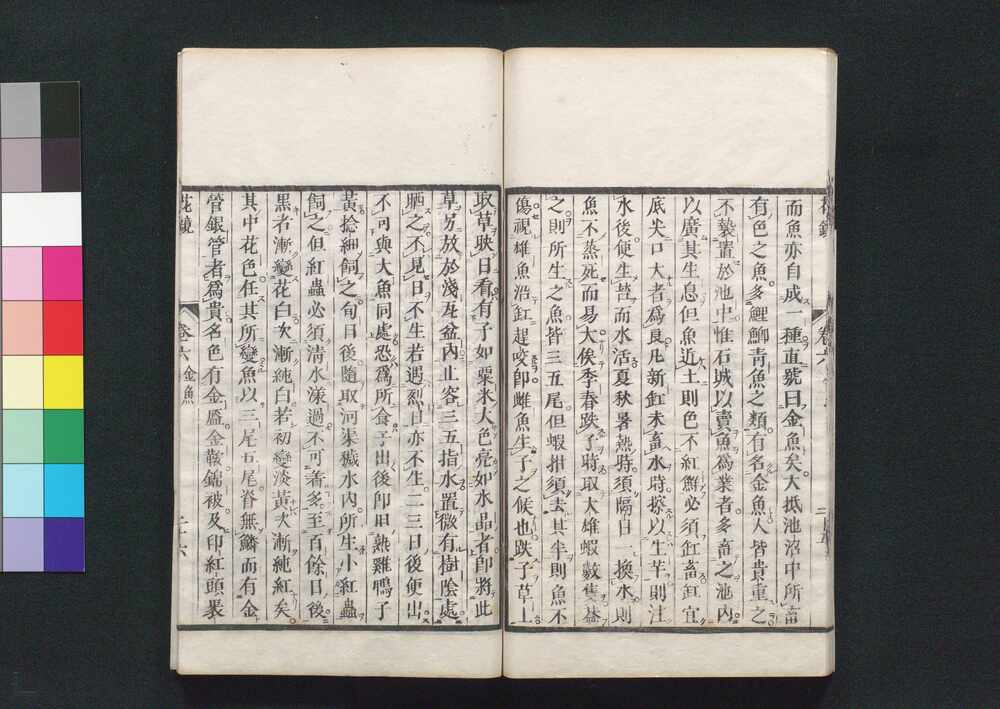 而魚亦自成一種直號曰金魚矣大抵池沼中所畜
有色之魚多鯉鯽青魚之類有名金魚人皆貴重之
不褻置於池中惟石城以賣魚為業者多畜之池內
以廣其生息但魚近土則色不紅鮮必須缸畜缸宜
底尖口大者爲良凡新缸未畜水時擦以生芋則注
水後便生苔而水活夏秋暑熱時須隔日一換水則
魚不蒸死而易大俟季春跌子時取大雄蝦數隻葢
之則所生之魚皆三五尾但蝦拑須去其半則魚不
傷視雄魚沿缸趕咬卽雌魚生子之候也跌子草上
取草映日看有子如粟米大色亮如水晶者卽將此
草另放於淺瓦盆內止容三五指水置微有樹陰處
晒之不見日不生若遇烈日亦不生二三日後便出
不可與大魚同處恐爲所食子出後卽用熟雞鴨子
黃捻細飼之旬日後隨取河渠穢水內所生小紅蟲
飼之但紅蟲必須清水漾過不可着多至百餘日後
黑者漸變花白次漸純白若初變淡黃次漸純紅矣
其中花色任其所變魚以三尾五尾脊無鱗而有金
管銀管者爲貴名色有金盔金鞍錦被及印紅頭裹
花鏡
卷六 金魚
二十六